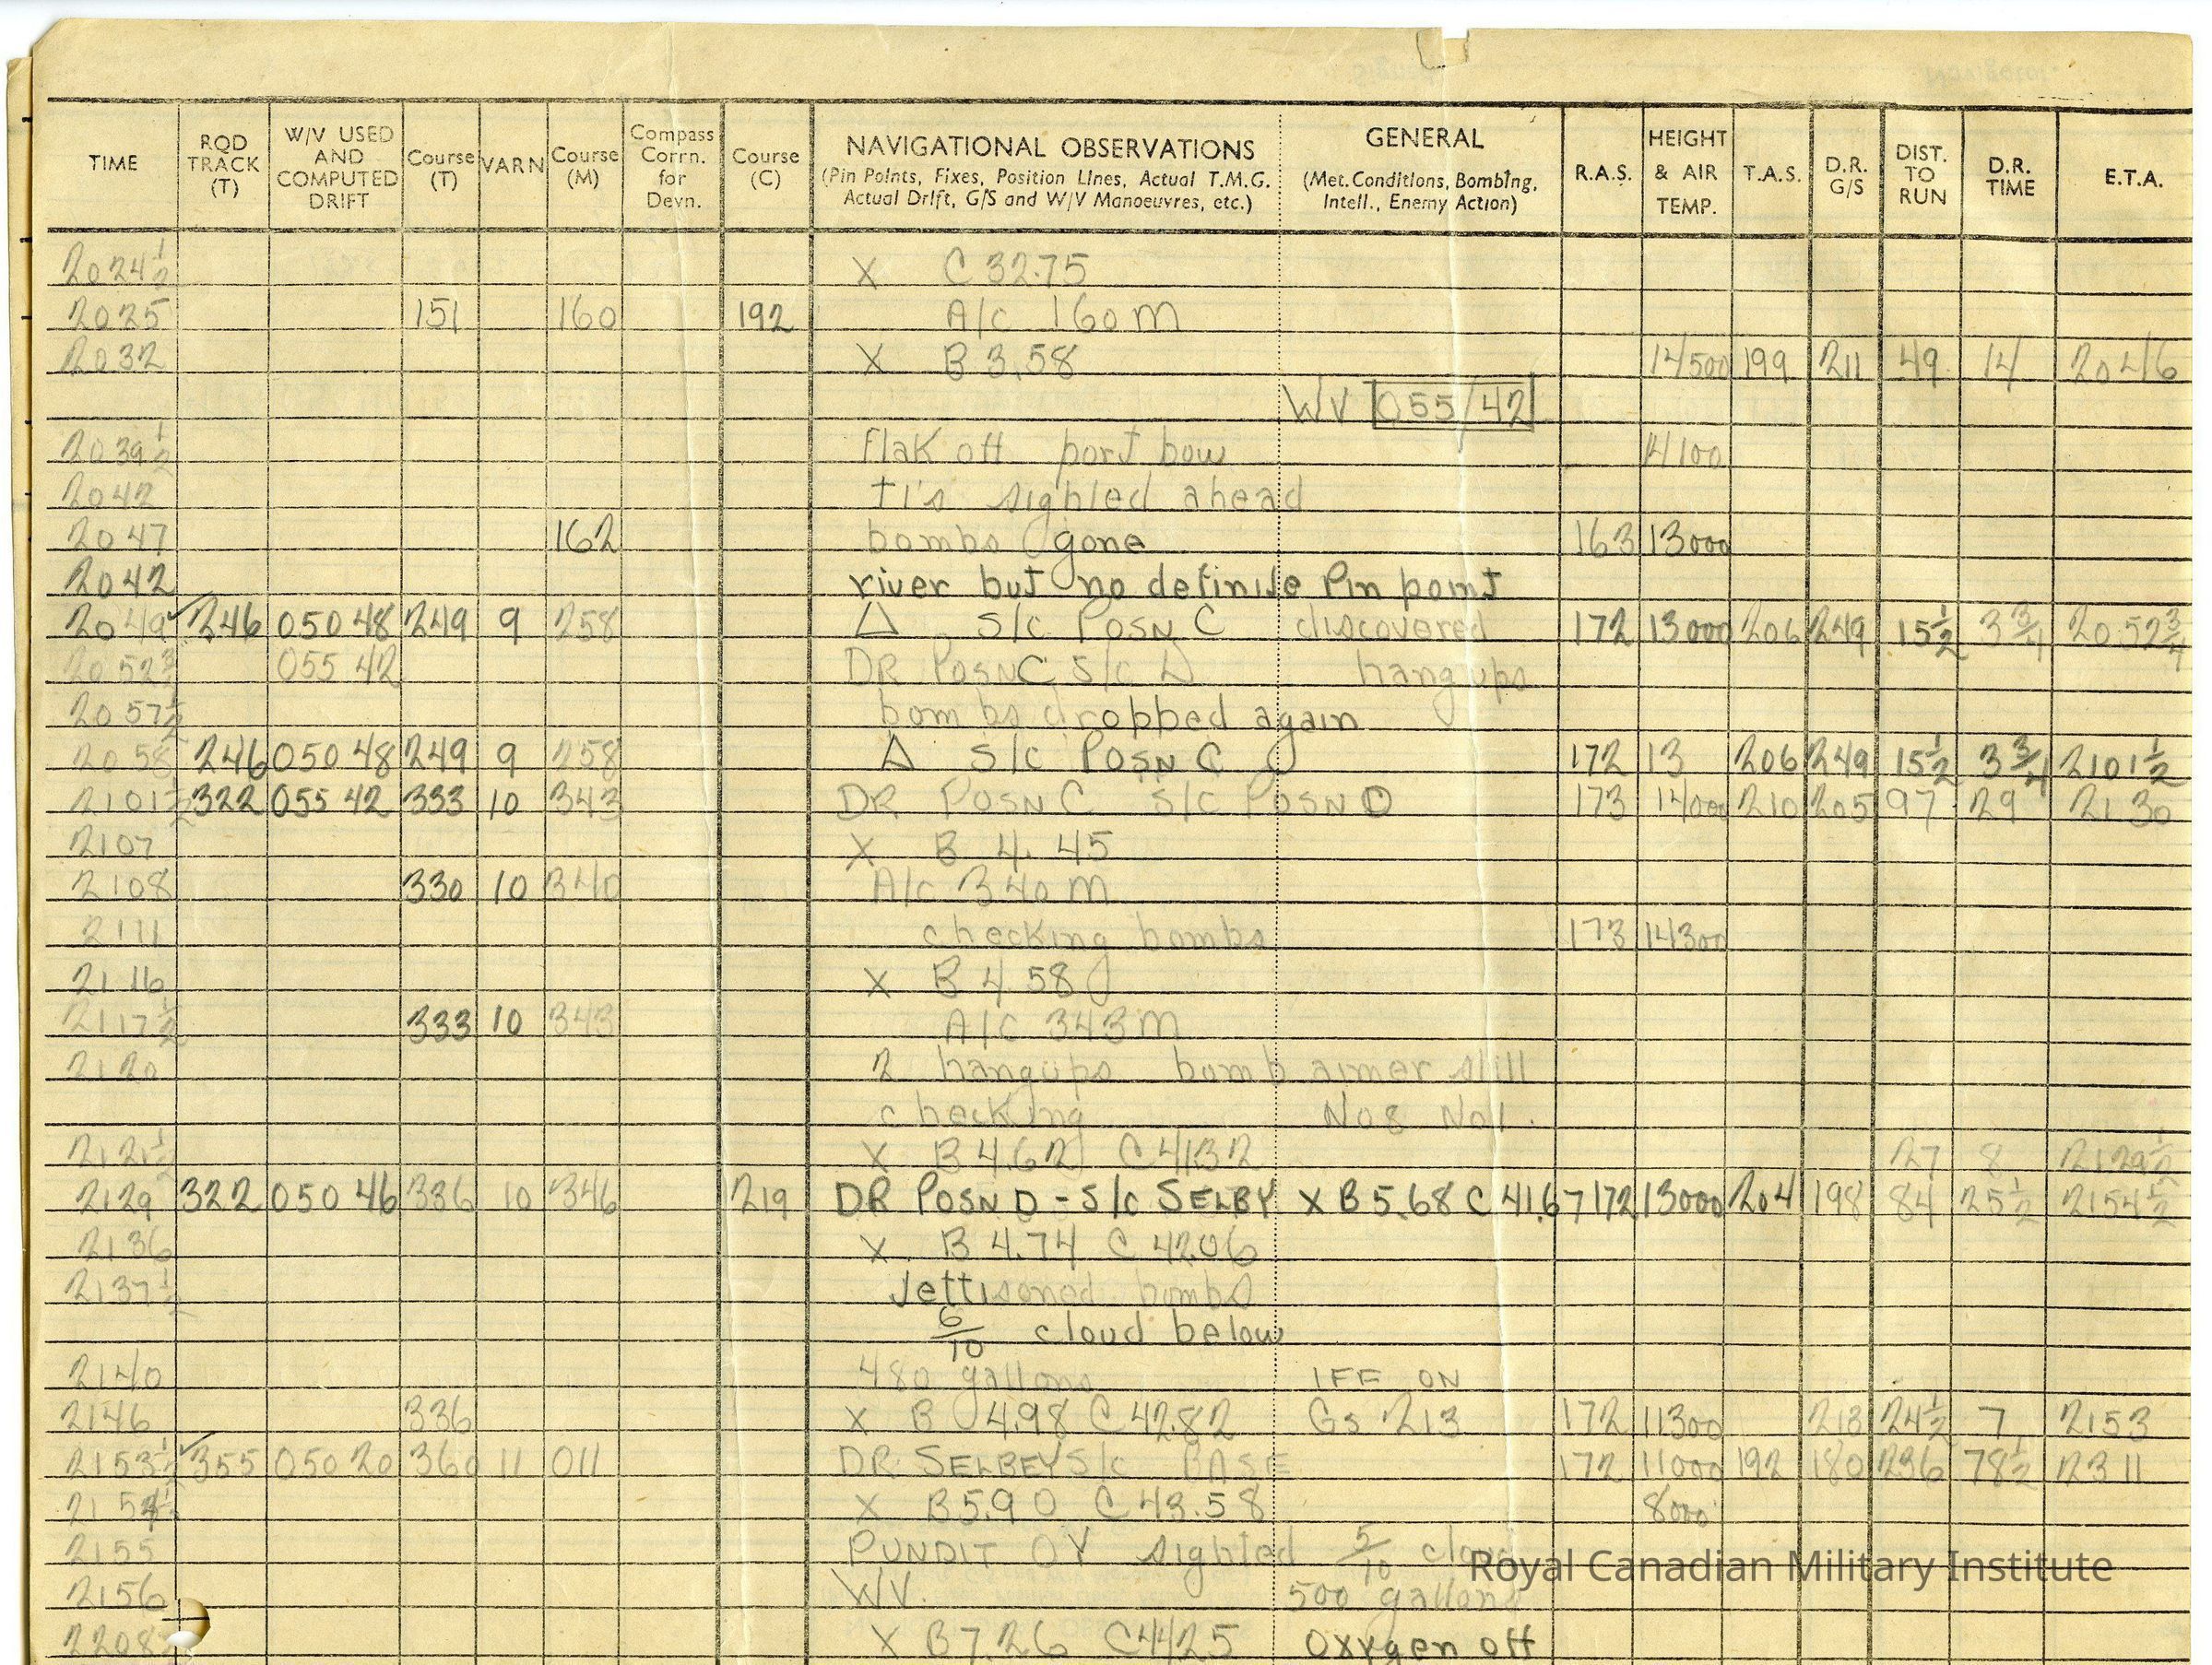 TIME RQD TRACK (T) W/V USED AND COMPUTED DRIFT Course (T) VARN Course (M) Compass Corrn. for Devn. Course (C) NAVIGATIONAL OBSERVATIONS (Pin Points, Fixes, Position Lines, Actual T.M.G. Actual Drift, G/S and W/V Manoeuvres, etc.) GENERAL (Met. Conditions, Bombing, Intell., Enemy Action) R.A.S. HEIGHT & AIR TEMP. T.A.S. D.R. G/S DIST. TO RUN D.R. TIME E.T.A.
2024½ X C 32.75
2025 151 160 192 A/c 160 M
2032 X B 3.58 14500 199 211 49 14 2046
WV 055/42
2039½ flak off port bow 14100
2042 TI's sighted ahead
2047 162 bombs gone 163 13000
2042 river but no definite Pin point
2049 246 050 48 249 9 258 △ S/c POSN C discovered 172 13000 206 249 15½ 3¾ 2052¾
2052¾ 055 42 DR POSN C S/c △ hang ups
2057½ bombs dropped again
2058 246 050 48 249 9 258 △ S/c POSN C 172 13 206 249 15½ 3¾ 2101½
2101½ 322 055 42 333 10 343 DR POSN C S/C POSN D 173 14000 210 205 97 29 2130
2107 X B 4.45
2108 330 10 340 A/c 340 M
2111 checking bombs 173 14300
2116 X B 4.58
2117½ 333 10 343 A/C 343 M
2120 2 hangups bomb aimer still
checking No8 No1.
2121½ X B 4.62 C 41.32 27 8 2129½
2129 322 050 46 336 10 346 219 DR POSN D - S/c SELBY X B 5.68 C 41.67 172 13000 204 198 84 25½ 2154½
2136 X B 4.74 C 42.06
2137½ Jettisoned bombs
6/10 cloud below
2140 480 gallons IFF ON
2146 336 X B 4.98 C 42.82 Gs 213 172 11300 213 24½ 7 2153
2153½ 355 050 20 360 11 011 DR SELBEY S/c BASE 172 11000 192 180 236 78½ 2311
2154½ X B 5.90 C 43.58 8000
2155 PUNDIT OY sighted 5/10 cloud
2156 WV. 500 gallons
2208½ X B 7.26 C 44.25 Oxygen off
Royal Canadian Military Institute